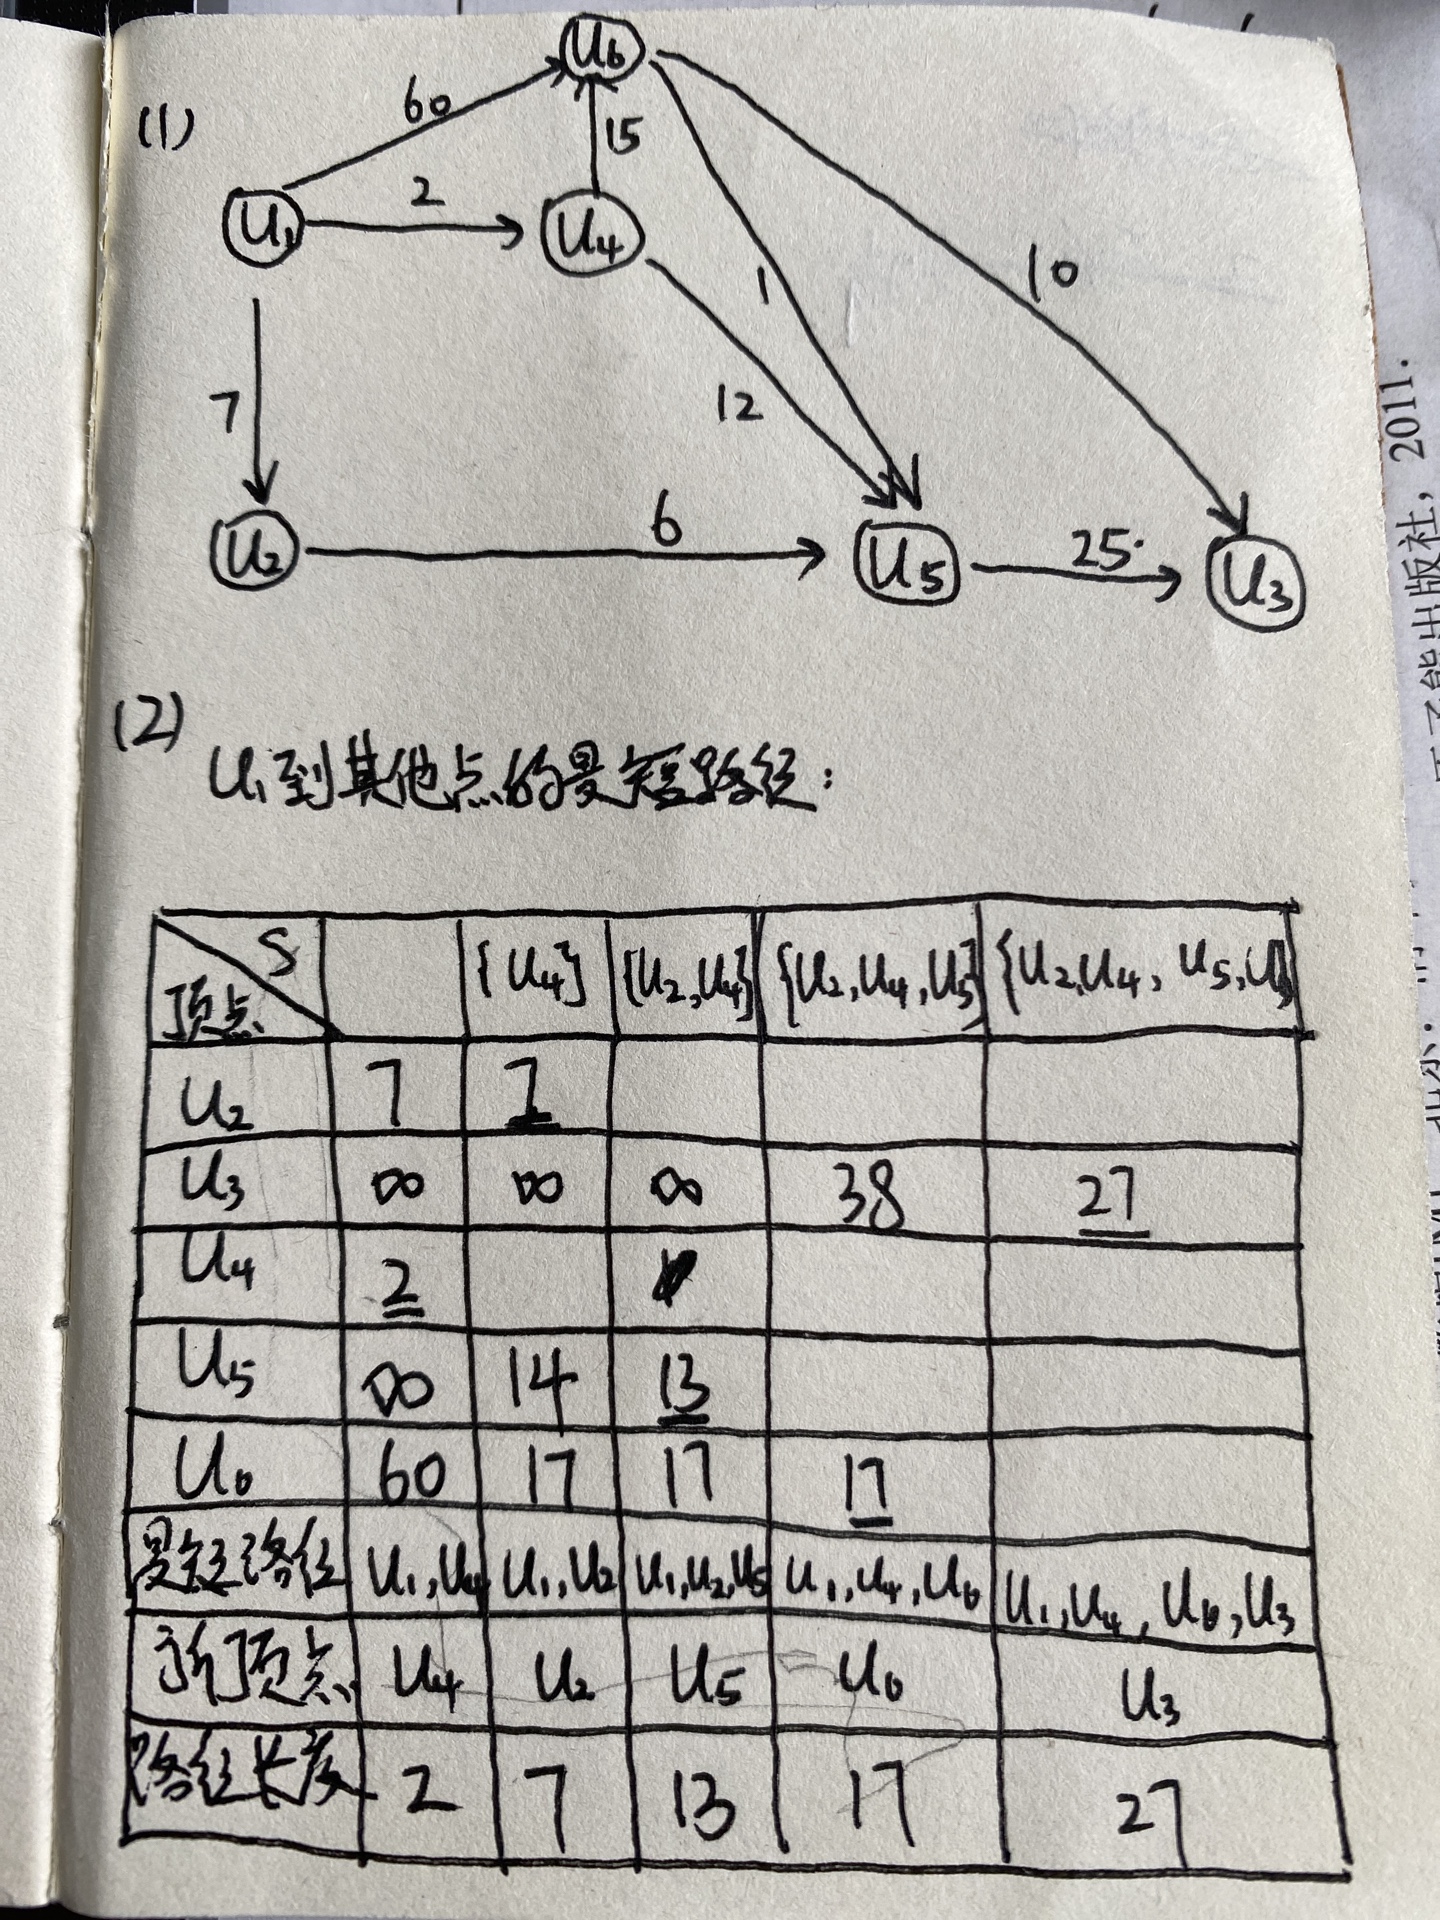 (1)
U6
60
15
2
U1
U4
10
1
7
12
6
25
U2
U5
U3
(2)
U1到其他点的最短路径：
S {U4} {U2,U4} {U2,U4,U5} {U2,U4,U5,U6}
顶点
U2 7 7
U3 ∞ ∞ ∞ 38 27
U4 2
U5 ∞ 14 13
U6 60 17 17 17
最短路径 U1,U4 U1,U2 U1,U2,U5 U1,U4,U6 U1,U4,U6,U3
新顶点 U4 U2 U5 U6 U3
路径长度 2 7 13 17 27
出版社，2011.